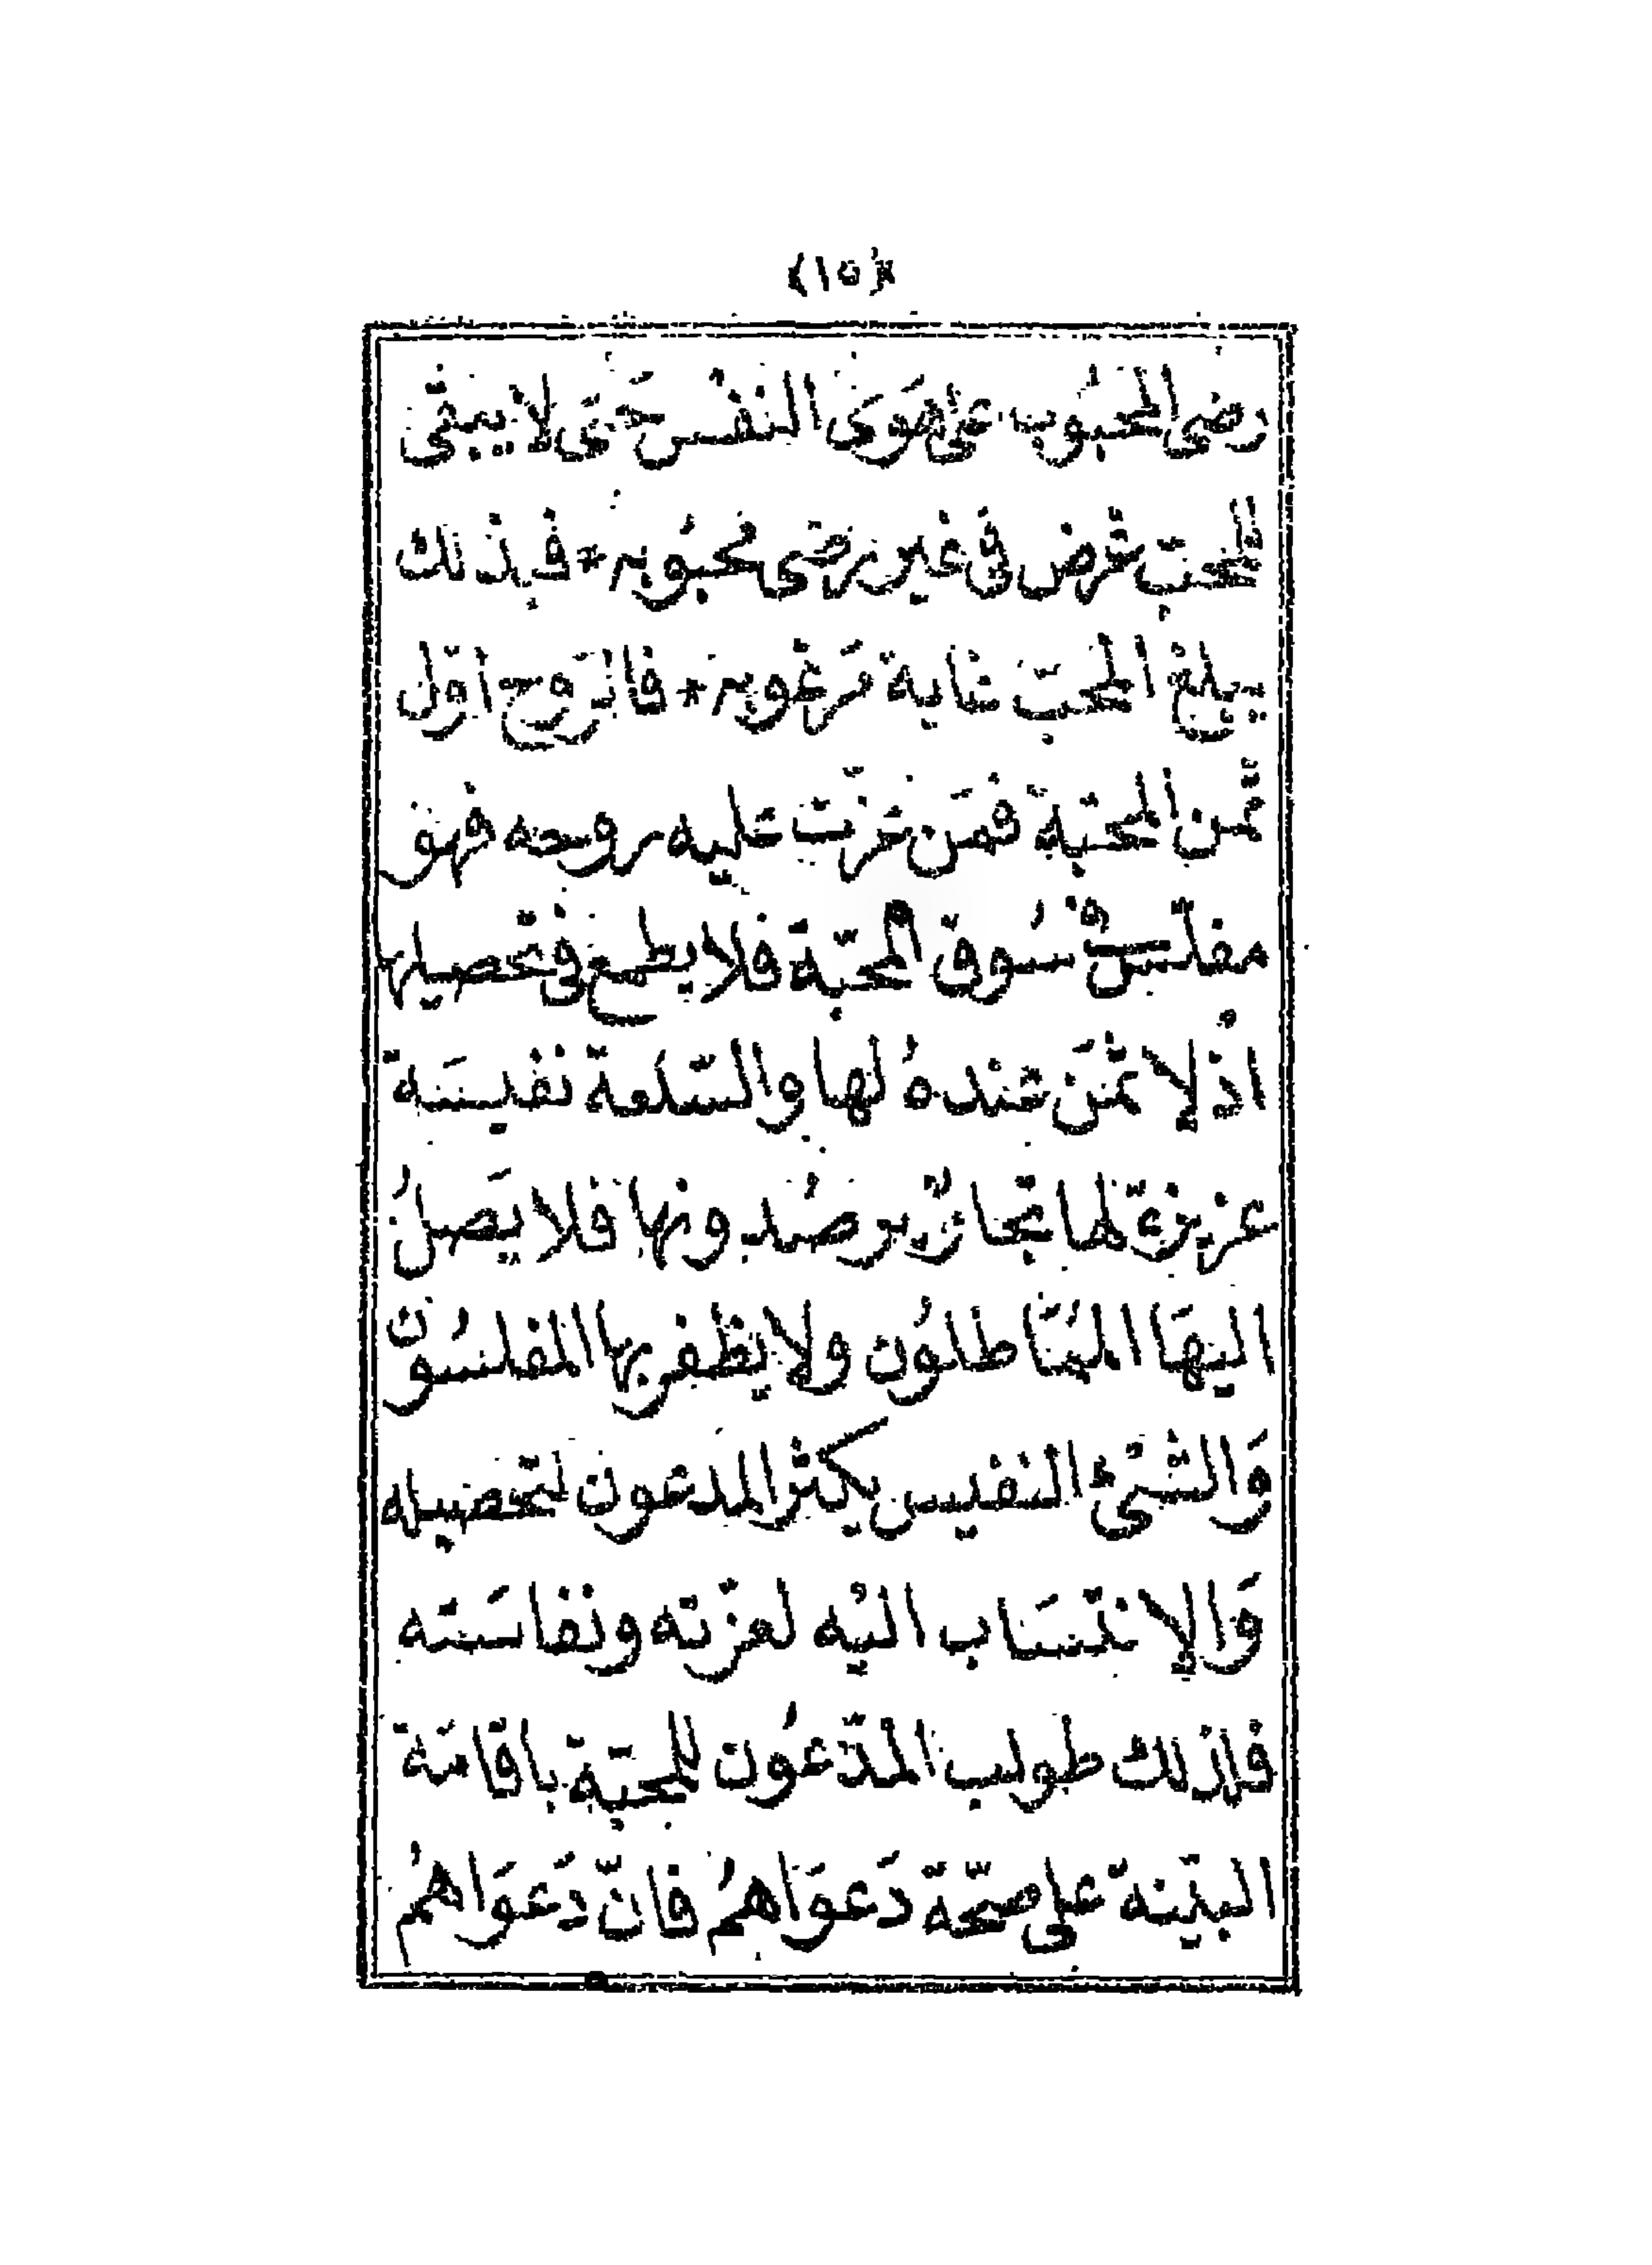 (١٥)
رضى المحبُوب على هَوَى النفْس حَتى لا يبقى
للمحبّ غرض في غير رضى محبُوبه * فبذلك
يبلغ المحبّ غاية مَرغوبه * فالرّوح اوّل
ثمن المحبّة فمَن عَزّت عليه روحه فهو
مفلسٌ في سُوق المحبّة فلا يطمع في تحصيلها
اذْ لا ثمَن عندهُ لها والسّلعة نفيسَة
عزيزة لها تجارٌ يرصُدونها فلا يَصلُ
اليهَا المُبَاطلوُن ولا يظفر بها المفلسُون
وَالشّئ النفيس يكثر المدعون لتحصيله
وَالإنتسَاب اليْه لعزّته ونفاسَته
فلذلك طولب المدّعُون للمحبّة باقامَة
البيّنة على صحّة دَعوَاهمُ فانّ دَعوَاهمُ